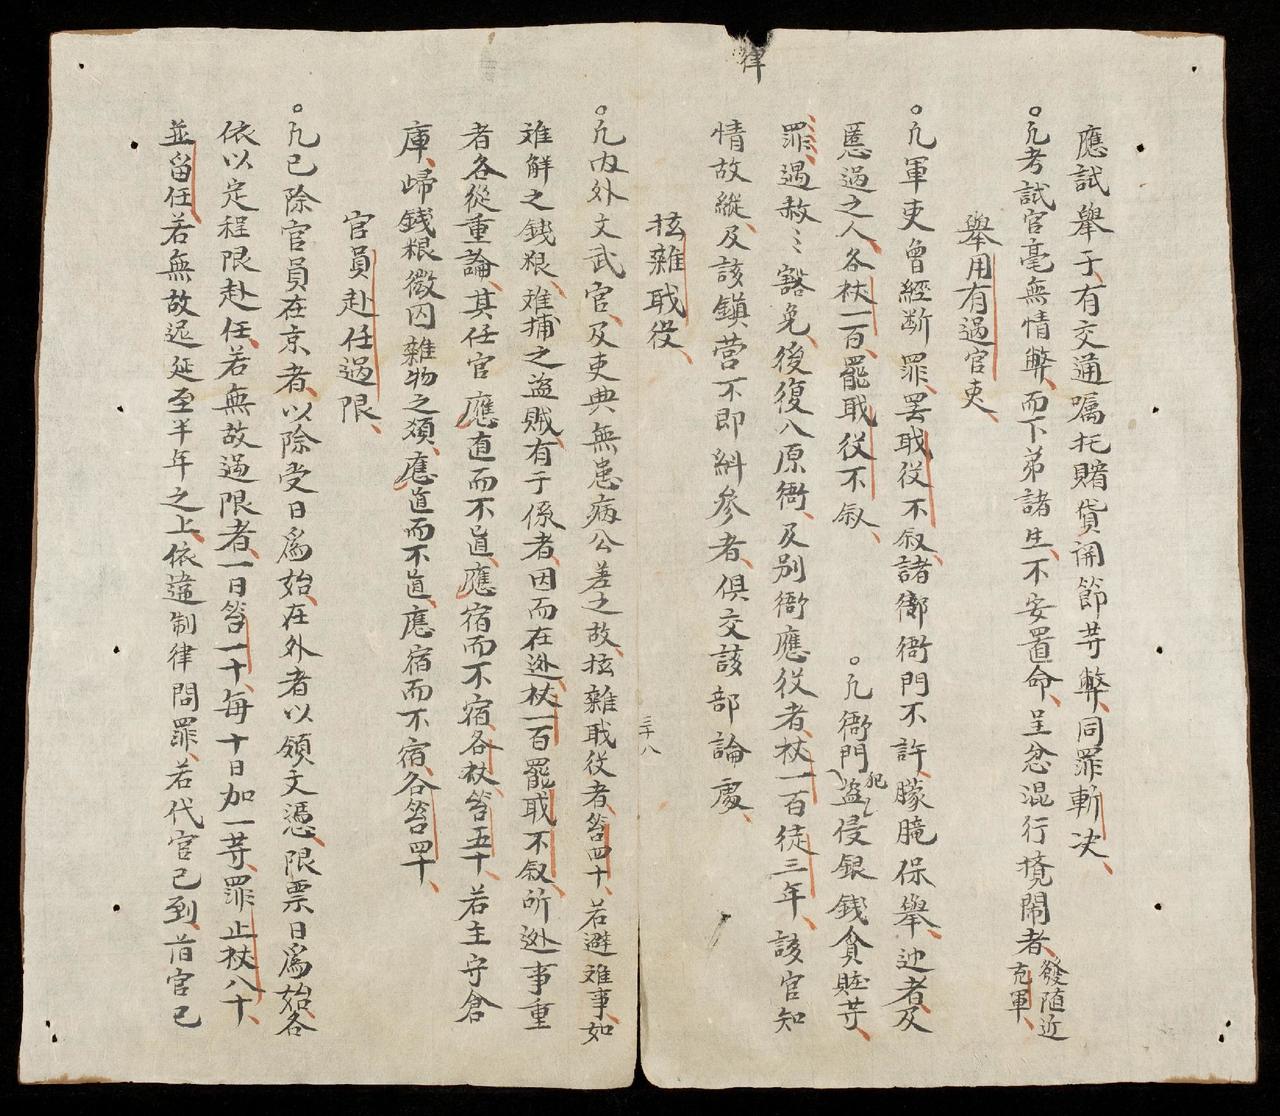 律
應試舉子、有交通囑托賭貨開節等弊、同罪斬决、
○凡考試官毫無情弊、而下第諸生、不安置命、呈忿混行攪鬧者、發随近充軍、
舉用有過官吏、
○凡軍吏曾經断罪、罢职役不叙、諸衙衙門不許、朦朧保舉、迯者、及
匿過之人、各杖一百、罷职役不叙、
○凡衙門犯盗侵銀錢貪賍等、
罪、遇赦〻豁免、後復入原衙、及别衙應役者、杖一百徒三年、該官知
情故縱、及該鎮营不即糾参者、俱交該部論處、
三十八
抂雜职役、
○凡内外文武官、及吏典無患病公差之故、抂雜职役者、笞四十、若避难事、如
难解之錢粮、难捕之盗贼、有干係者、因而在迯、杖一百罷职不叙、所迯事重
者各從重論、其任官應直而不直、應宿而不宿、各杖笞五十、若主守倉
庫、歸錢粮徵囚雜物之類、應直而不直、應宿而不宿、各笞四十、
官員赴任過限、
○凡已除官員在京者、以除受日爲始、在外者以領文憑、限票日爲始、各
依以定程限赴任、若無故過限者、一日笞一十、每十日加一等、罪止杖八十、
並留任、若無故迟延至半年之上、依違制律問罪、若代官已到、旧官已